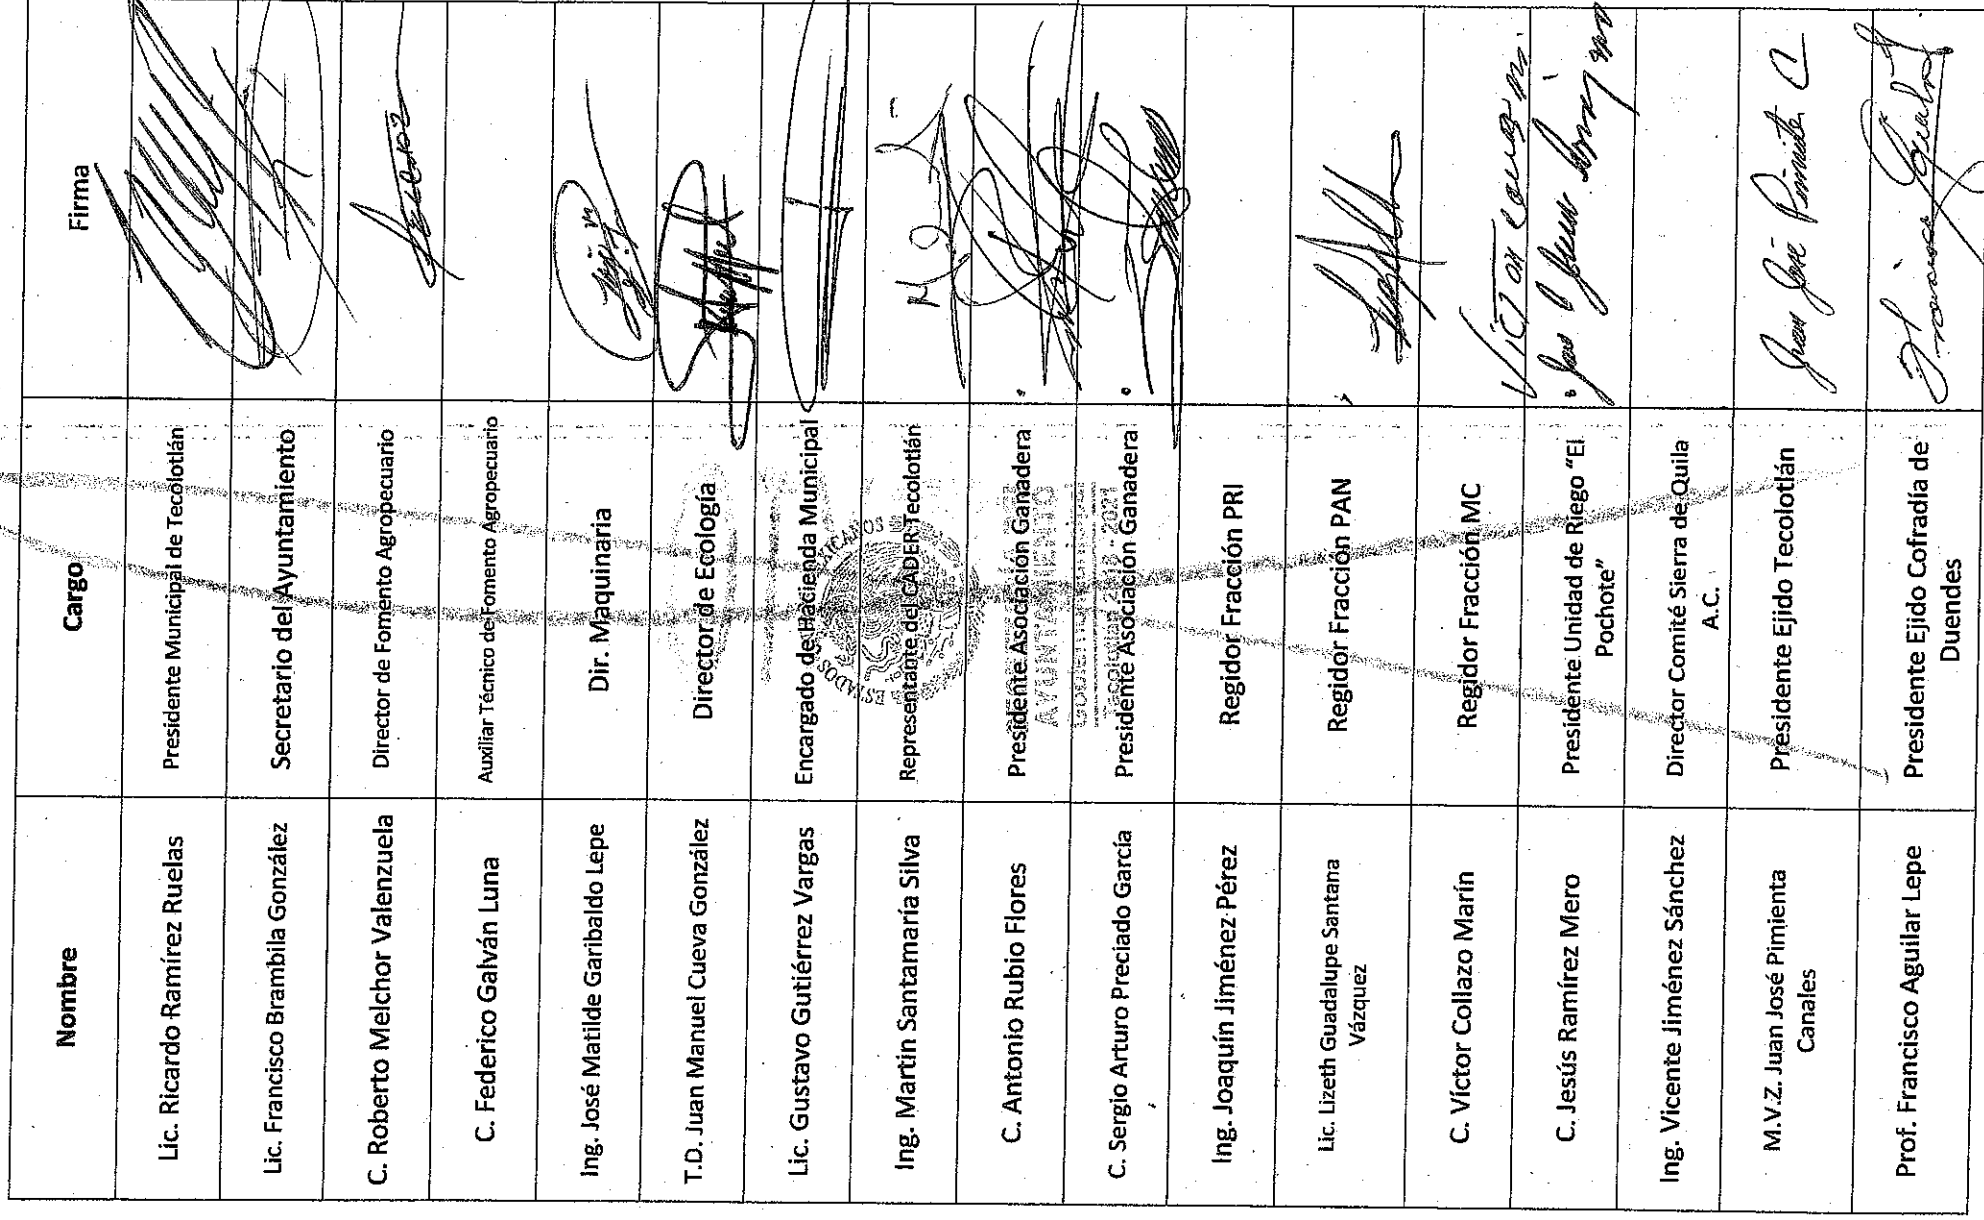 Nombre Cargo Firma
Lic. Ricardo Ramírez Ruelas Presidente Municipal de Tecolotlán
Lic. Francisco Brambila González Secretario del Ayuntamiento
C. Roberto Melchor Valenzuela Director de Fomento Agropecuario
C. Federico Galván Luna Auxiliar Técnico de Fomento Agropecuario
Ing. José Matilde Garibaldo Lepe Dir. Maquinaria
T.D. Juan Manuel Cueva González Director de Ecología
Lic. Gustavo Gutiérrez Vargas Encargado de Hacienda Municipal
Ing. Martin Santamaría Silva Representante del CADER Tecolotlán
C. Antonio Rubio Flores Presidente Asociación Ganadera
C. Sergio Arturo Preciado García Presidente Asociación Ganadera
Ing. Joaquín Jiménez Pérez Regidor Fracción PRI
Lic. Lizeth Guadalupe Santana
Vázquez
Regidor Fracción PAN
C. Víctor Collazo Marín Regidor Fracción MC
C. Jesús Ramírez Mero
Presidente Unidad de Riego "El
Pochote"
Ing. Vicente Jiménez Sánchez
Director Comité Sierra de Quila
A.C.
M.V.Z. Juan José Pimienta
Canales
Presidente Ejido Tecolotlán
Juan José Pimienta C
Prof. Francisco Aguilar Lepe
Presidente Ejido Cofradía de
Duendes
ESTADOS
AYUNTAMIENTO
Tecolotlán 2018 - 2021